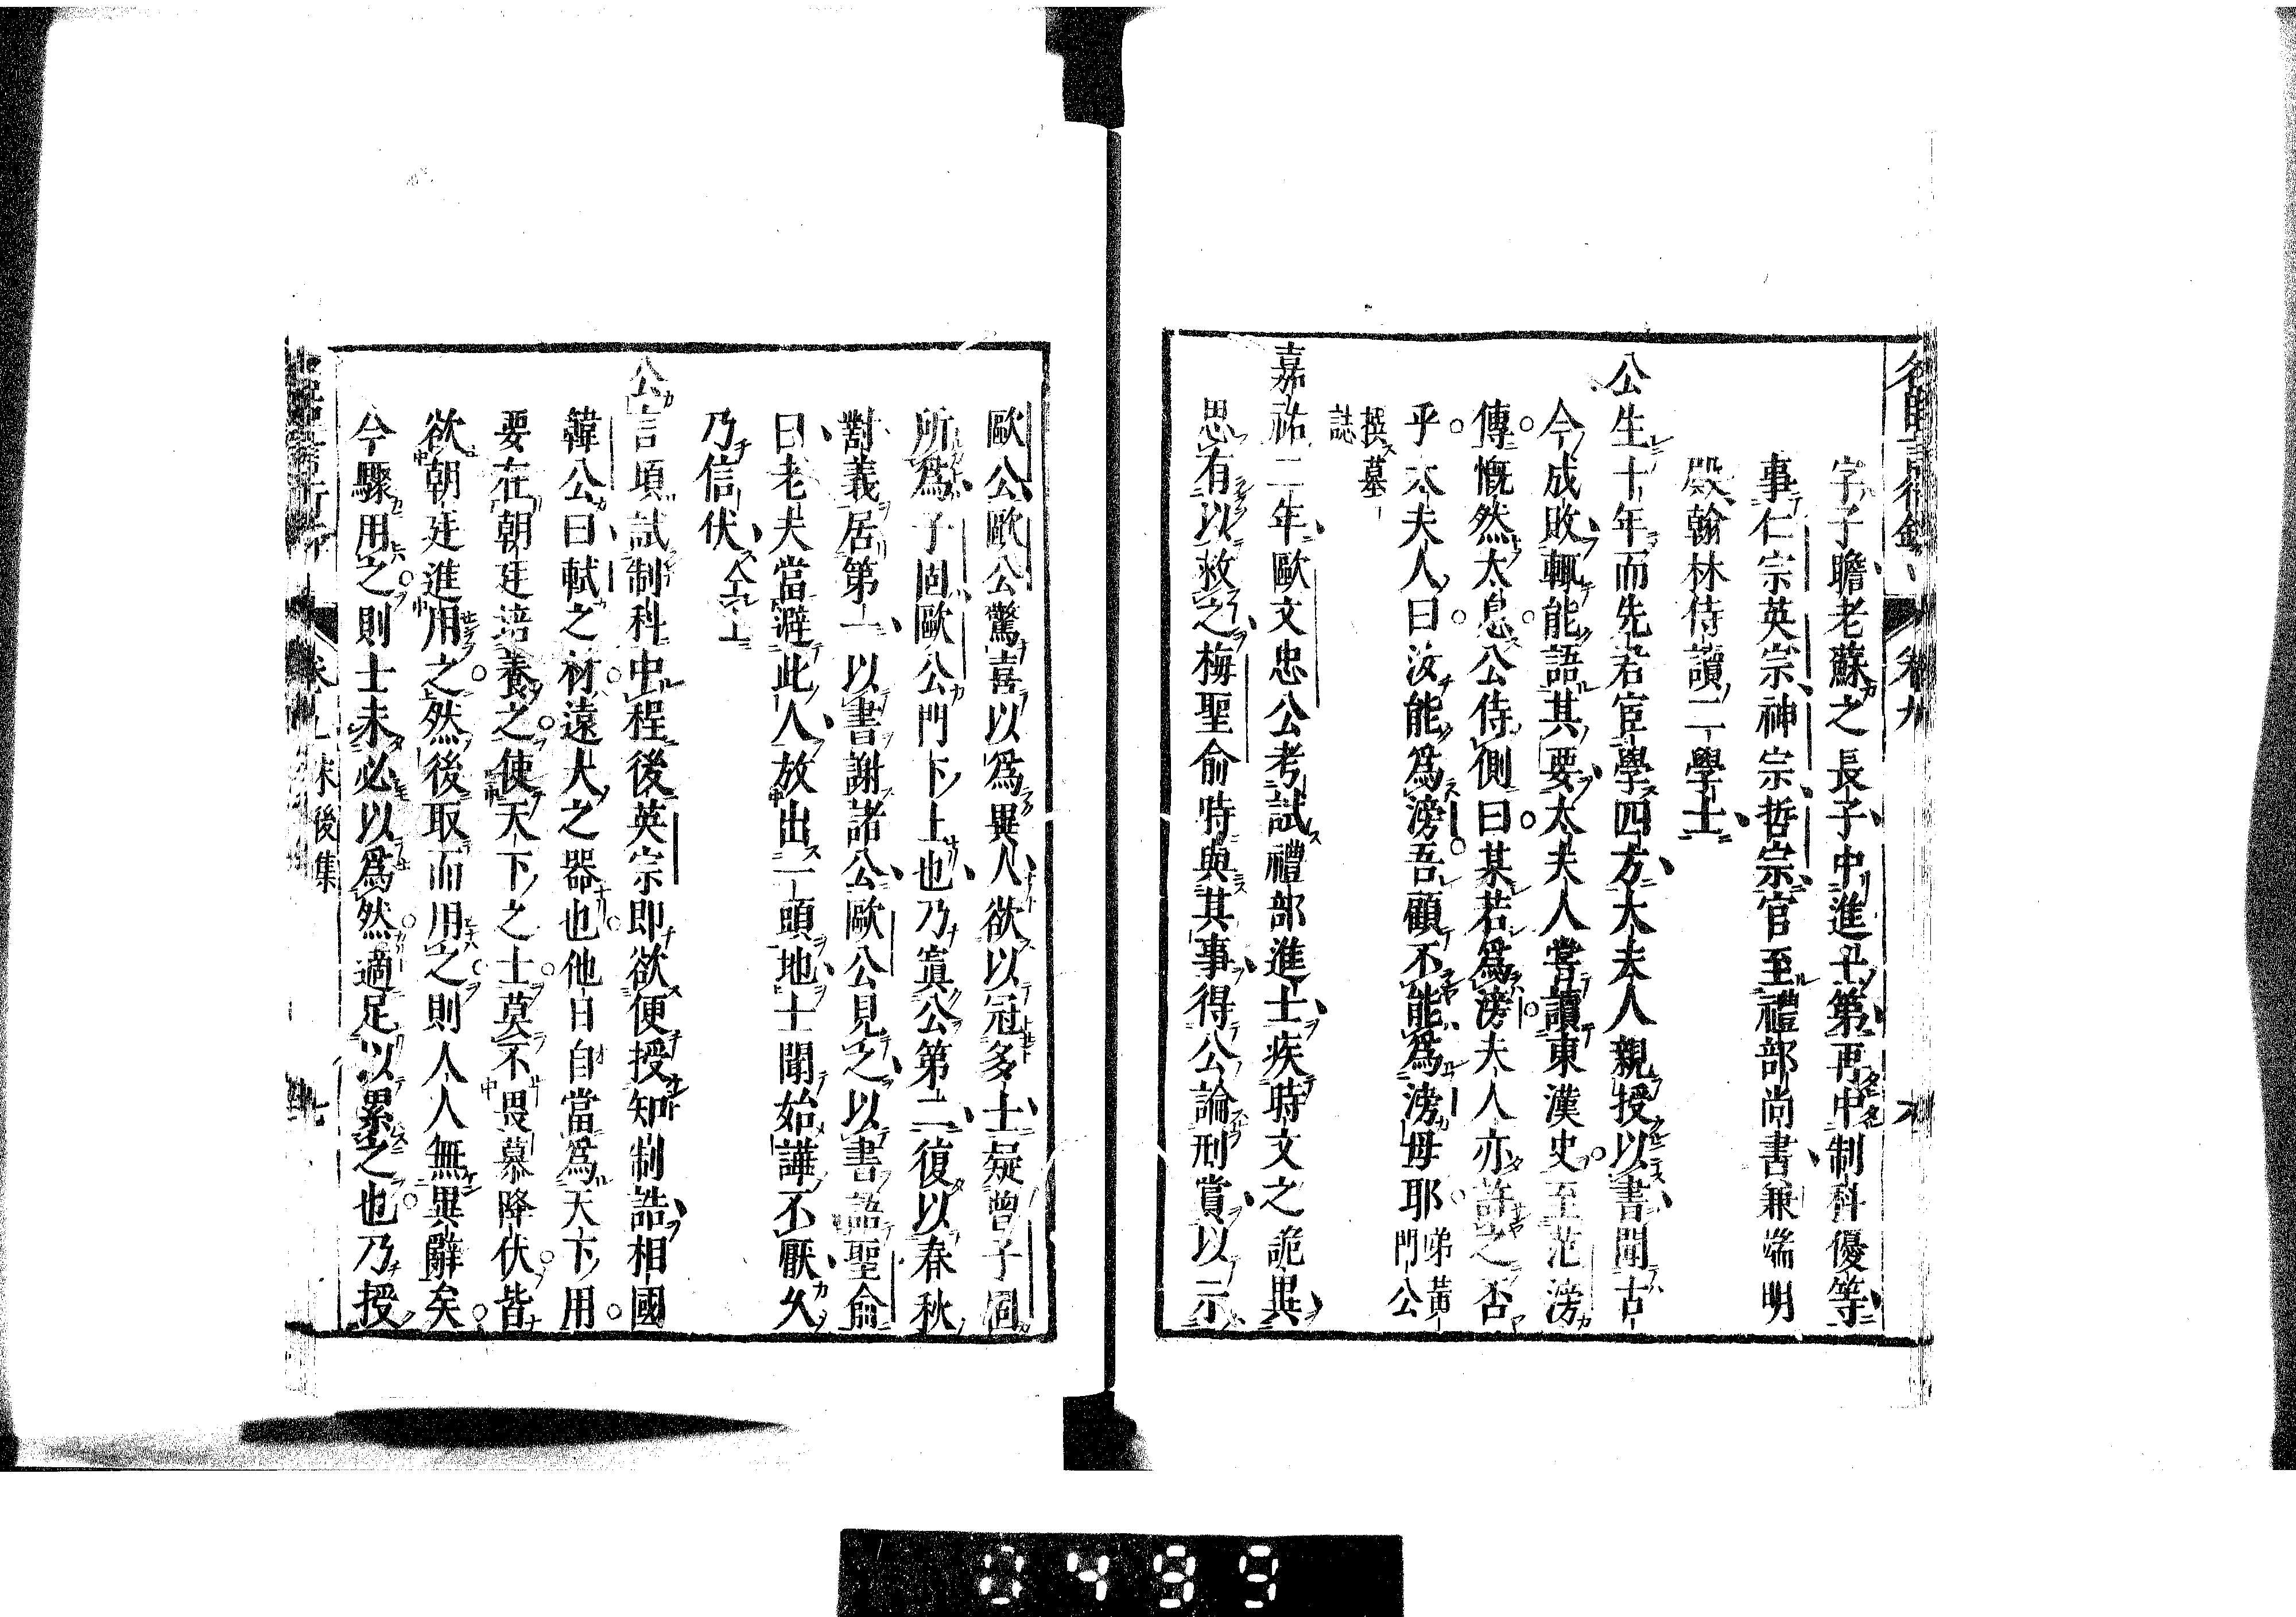 字子瞻老蘇之長子中進士第再中制科優等
事仁宗英宗神宗哲宗官至禮部尚書兼端明
殿翰林侍讀二學士
公生十年而先君宦學四方太夫人親授以書聞古
今成敗輒能語其要太夫人嘗讀東漢史至范滂
傳慨然太息公侍側曰某若爲滂夫人亦許之否
乎太夫人曰汝能爲滂吾顧不能爲滂母耶 弟黃門公
撰墓誌
嘉祐二年歐文忠公考試禮部進士疾時文之詭異
思有以救之梅聖俞時與其事得公論刑賞以示
歐公歐公驚喜以爲異人欲以冠多士疑曾子固
所爲子固歐公門下士也乃寘公第二復以春秋
對義居第一以書謝諸公歐公見之以書語聖俞
曰老夫當避此人放出一頭地士聞始譁不厭久
乃信伏 仝上
公言頃試制科中程後英宗即欲便授知制誥相國
韓公曰軾之材遠大之器也他日自當爲天下用
要在朝廷培養之使天下之士莫不畏慕降伏皆
欲朝廷進用之然後取而用之則人人無異辭矣
今驟用之則士未必以爲然適足以累之也乃授
後集
0499